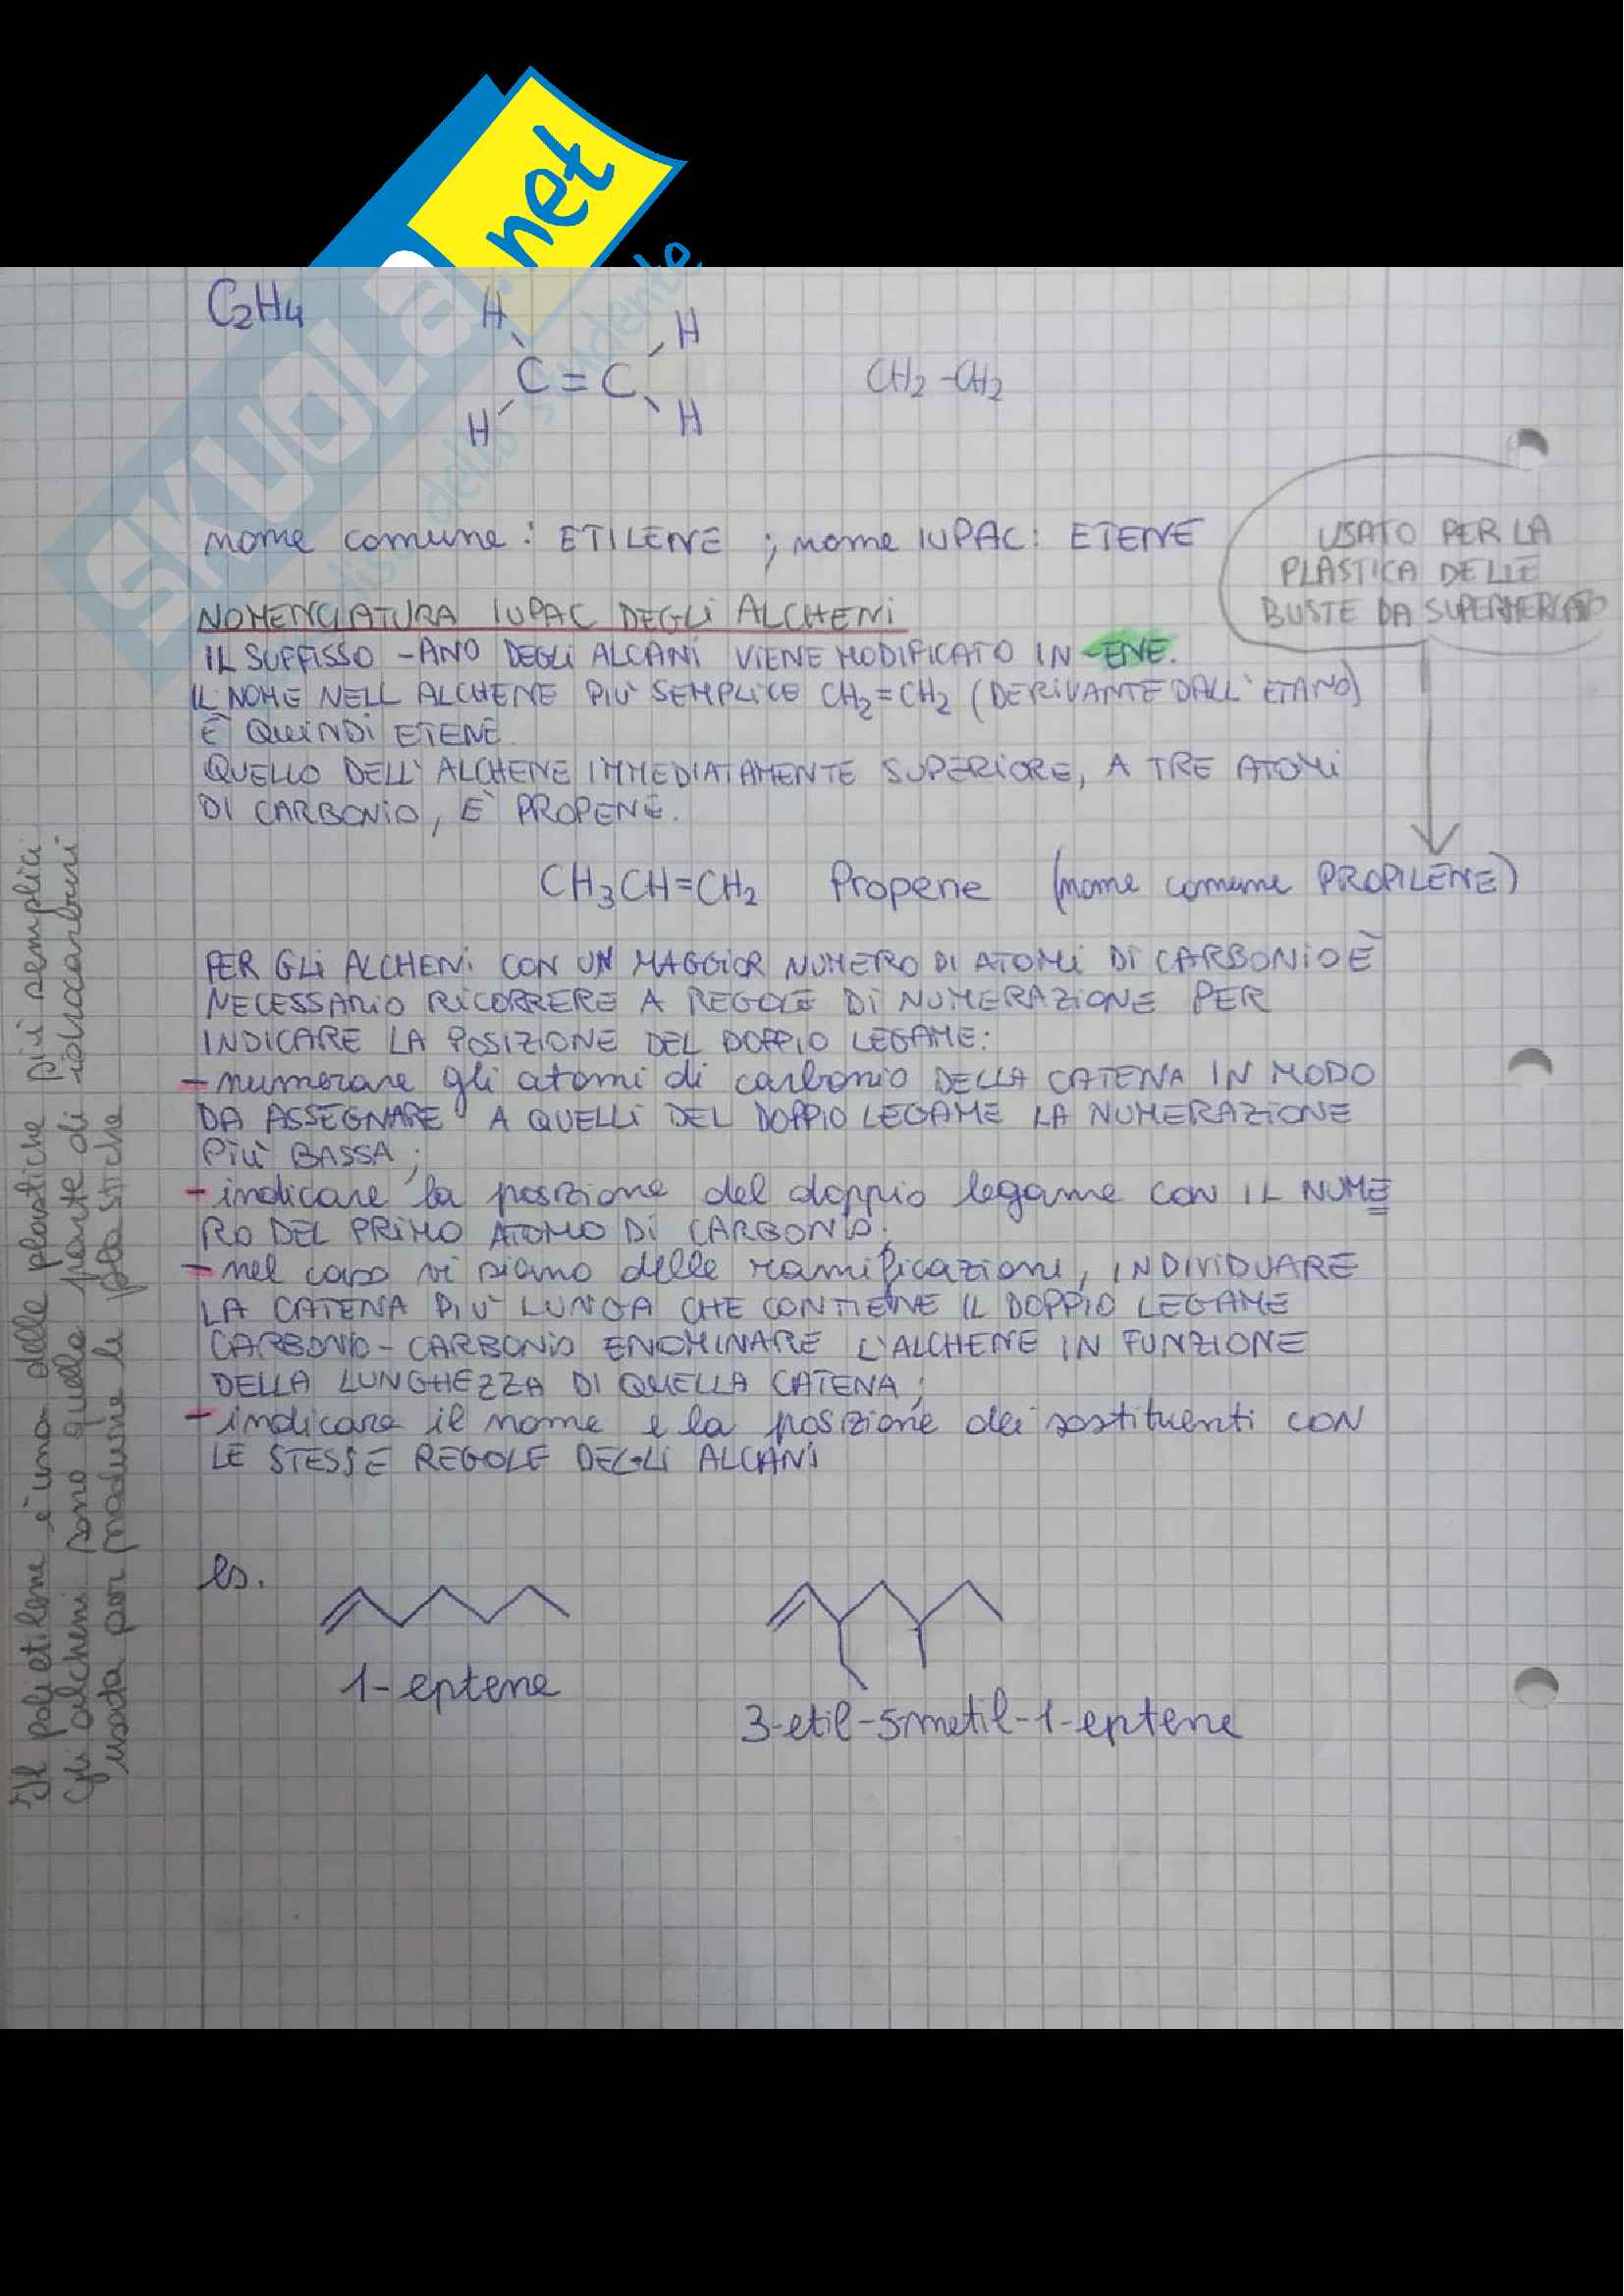 SKUOLa.net
C2H4
H H
C=C CH2-CH2
H H
nome comune: ETILENE ; nome IUPAC: ETENE
USATO PER LA
PLASTICA DELLE
BUSTE DA SUPERMERCATO
NOMENCLATURA IUPAC DEGLI ALCHENI
IL SUFFISSO -ANO DEGLI ALCANI VIENE MODIFICATO IN -ENE.
IL NOME NELL ALCHENE PIÙ SEMPLICE CH2=CH2 (DERIVANTE DALL'ETANO)
È QUINDI ETENE.
QUELLO DELL'ALCHENE IMMEDIATAMENTE SUPERIORE, A TRE ATOMI
DI CARBONIO, E' PROPENE.
CH3CH=CH2 Propene (nome comune PROPILENE)
PER GLI ALCHENI CON UN MAGGIOR NUMERO DI ATOMI DI CARBONIO È
NECESSARIO RICORRERE A REGOLE DI NUMERAZIONE PER
INDICARE LA POSIZIONE DEL DOPPIO LEGAME:
- numerare gli atomi di carbonio DELLA CATENA IN MODO
DA ASSEGNARE A QUELLI DEL DOPPIO LEGAME LA NUMERAZIONE
PIÙ BASSA;
- indicare la posizione del doppio legame CON IL NUME
RO DEL PRIMO ATOMO DI CARBONIO;
- nel caso vi siano delle ramificazioni, INDIVIDUARE
LA CATENA PIÙ LUNGA CHE CONTIENE IL DOPPIO LEGAME
CARBONIO-CARBONIO E NOMINARE L'ALCHENE IN FUNZIONE
DELLA LUNGHEZZA DI QUELLA CATENA;
- indicare il nome e la posizione dei sostituenti CON
LE STESSE REGOLE DEGLI ALCANI
es.
1-eptene
3-etil-5metil-1-eptene
Il polietilene è una delle plastiche più semplici
Gli alcheni sono quella parte di idrocarburi
usata per produrre le plastiche